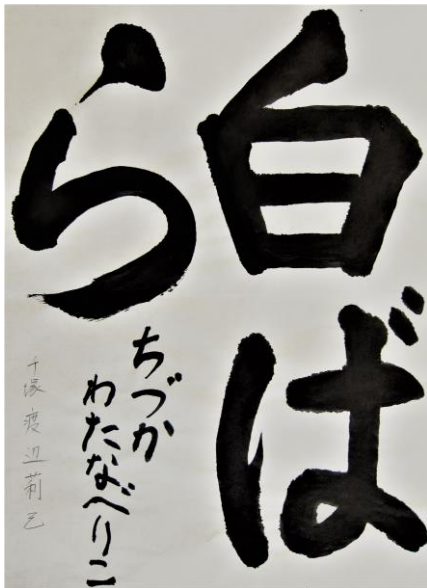 白ば
ら
ちづか
わたなべりこ
千塚渡辺莉己